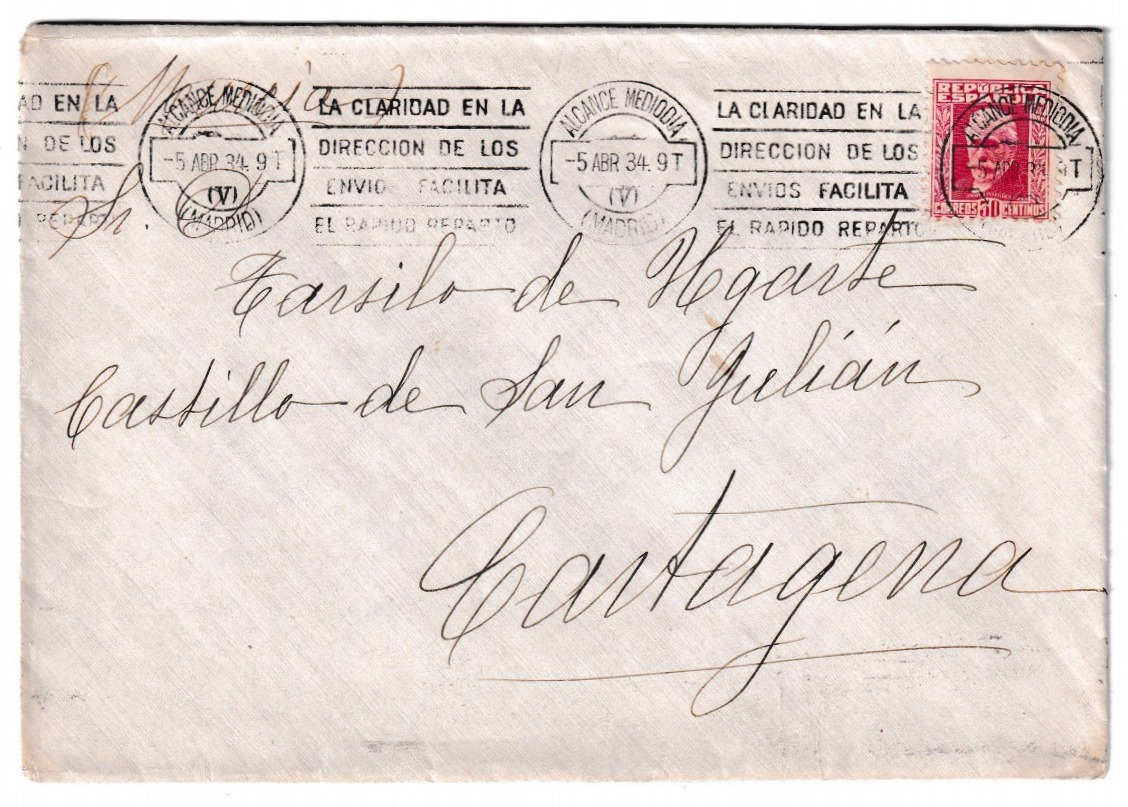 (Murcia)
AD EN LA
N DE LOS
FACILITA
REPARTO
ALCANCE MEDIODIA
-5 ABR 34. 9 T
(V)
(MADRID)
LA CLARIDAD EN LA
DIRECCION DE LOS
ENVIOS FACILITA
EL RAPIDO REPARTO
ALCANCE MEDIODIA
-5 ABR 34. 9 T
(V)
(MADRID)
LA CLARIDAD EN LA
DIRECCION DE LOS
ENVIOS FACILITA
EL RAPIDO REPARTO
REPÚBLICA
ESPAÑOLA
CORREOS 30 CENTIMOS
ALCANCE MEDIODIA
-5 ABR 34. 9 T
Sr. D.
Tarsilo de Ugarte
Castillo de San Julián
Cartagena